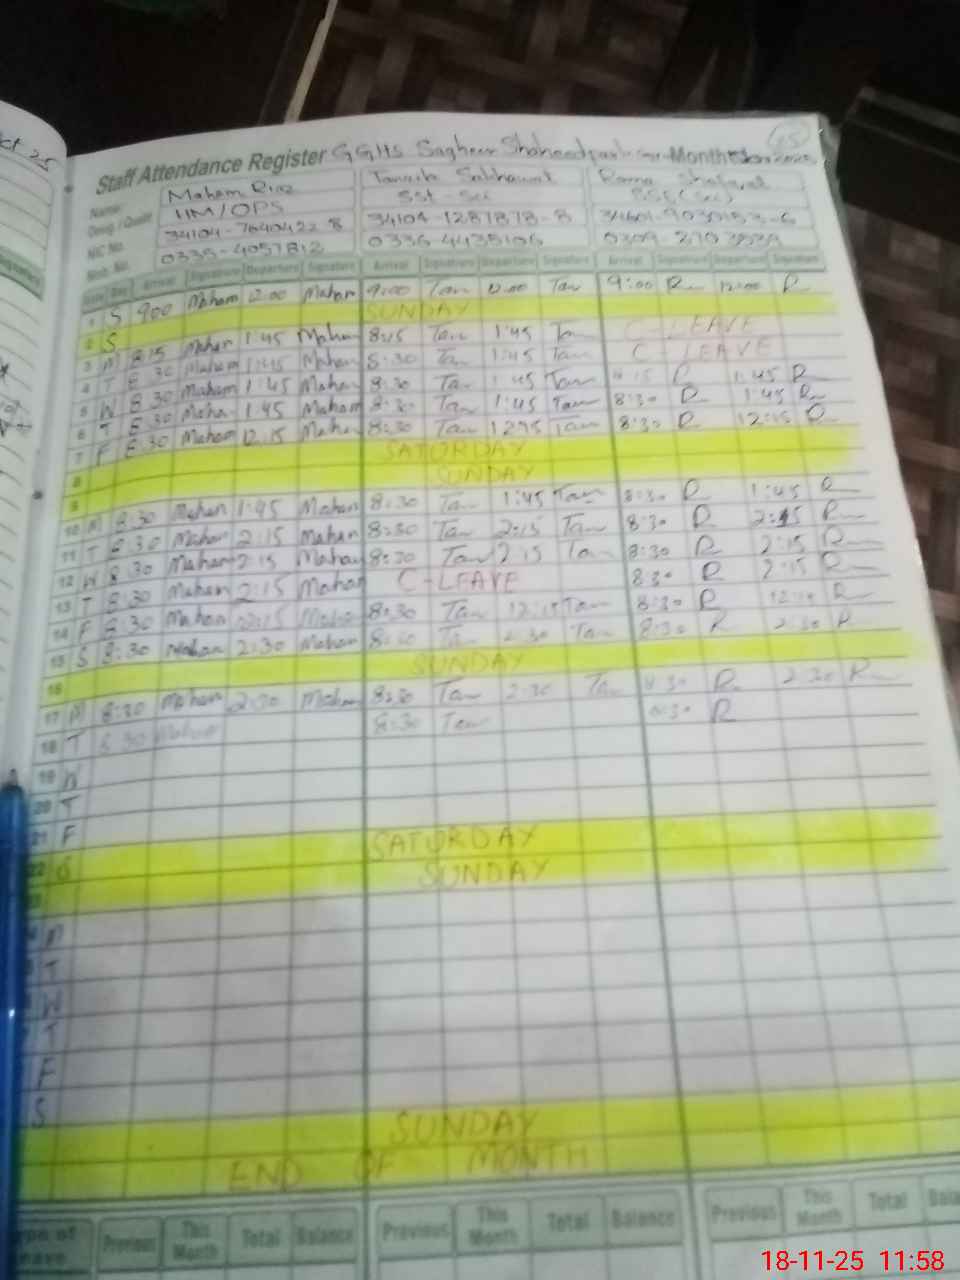 Oct 25
Staff Attendance Register GGHS Sagheer Shaheed Month
Name: Maham Riaz Tanzila Sabhawat Rama Shafaqat
Desig / Qualif HM/OPS SST-Sci SSE(Sci)
NIC No. 34104-7640422-8 34104-1287878-8 34601-9030153-6
Mob. No. 0335-4057812 0336 4435106 0309-2703839
Date Day Arrival Signature Departure Signature Arrival Signature Departure Signature Arrival Signature Departure Signature
1 S 9:00 Maham 12:00 Maham 9:00 Tan 12:00 Tan 9:00 R 12:00 R
2 S SUNDAY
3 M 8:15 Maham 1:45 Maham 8:15 Tan 1:45 Tan C-LEAVE
4 T 8:30 Maham 1:45 Maham 8:30 Tan 1:45 Tan C-LEAVE
5 W 8:30 Maham 1:45 Maham 8:30 Tan 1:45 Tan R 1:45 R
6 T 8:30 Maham 1:45 Maham 8:30 Tan 1:45 Tan 8:30 R 1:45 R
7 F 8:30 Maham 12:15 Maham 8:30 Tan Tan 8:30 R 12:15 R
8 SATURDAY
9 SUNDAY
10 M 8:30 Maham 1:45 Maham 8:30 Tan 1:45 Tan 8:30 R 1:45 R
11 T 8:30 Maham 2:15 Maham 8:30 Tan 2:15 Tan 8:30 R 2:15 R
12 W 8:30 Maham 2:15 Maham 8:30 Tan 2:15 Tan 8:30 R 2:15 R
13 T 8:30 Maham 2:15 Maham C-LEAVE 8:30 R 2:15 R
14 F 8:30 Maham Maham 8:30 Tan 12:15 Tan 8:30 R R
15 S 8:30 Maham 2:30 Maham 8:30 Tan 2:30 Tan 8:30 R 2:30 R
16 SUNDAY
17 M 8:30 Maham 2:30 Maham 8:30 Tan 2:30 Tan 8:30 R 2:30 R
18 T 8:30 Maham 8:30 Tan 8:30 R
19 W
20 T
21 F
22 S SATURDAY
23 SUNDAY
M
T
W
T
F
S
SUNDAY
END OF MONTH
Previous This Month Total Balance Previous This Month Total Balance Previous This Month Total
18-11-25 11:58